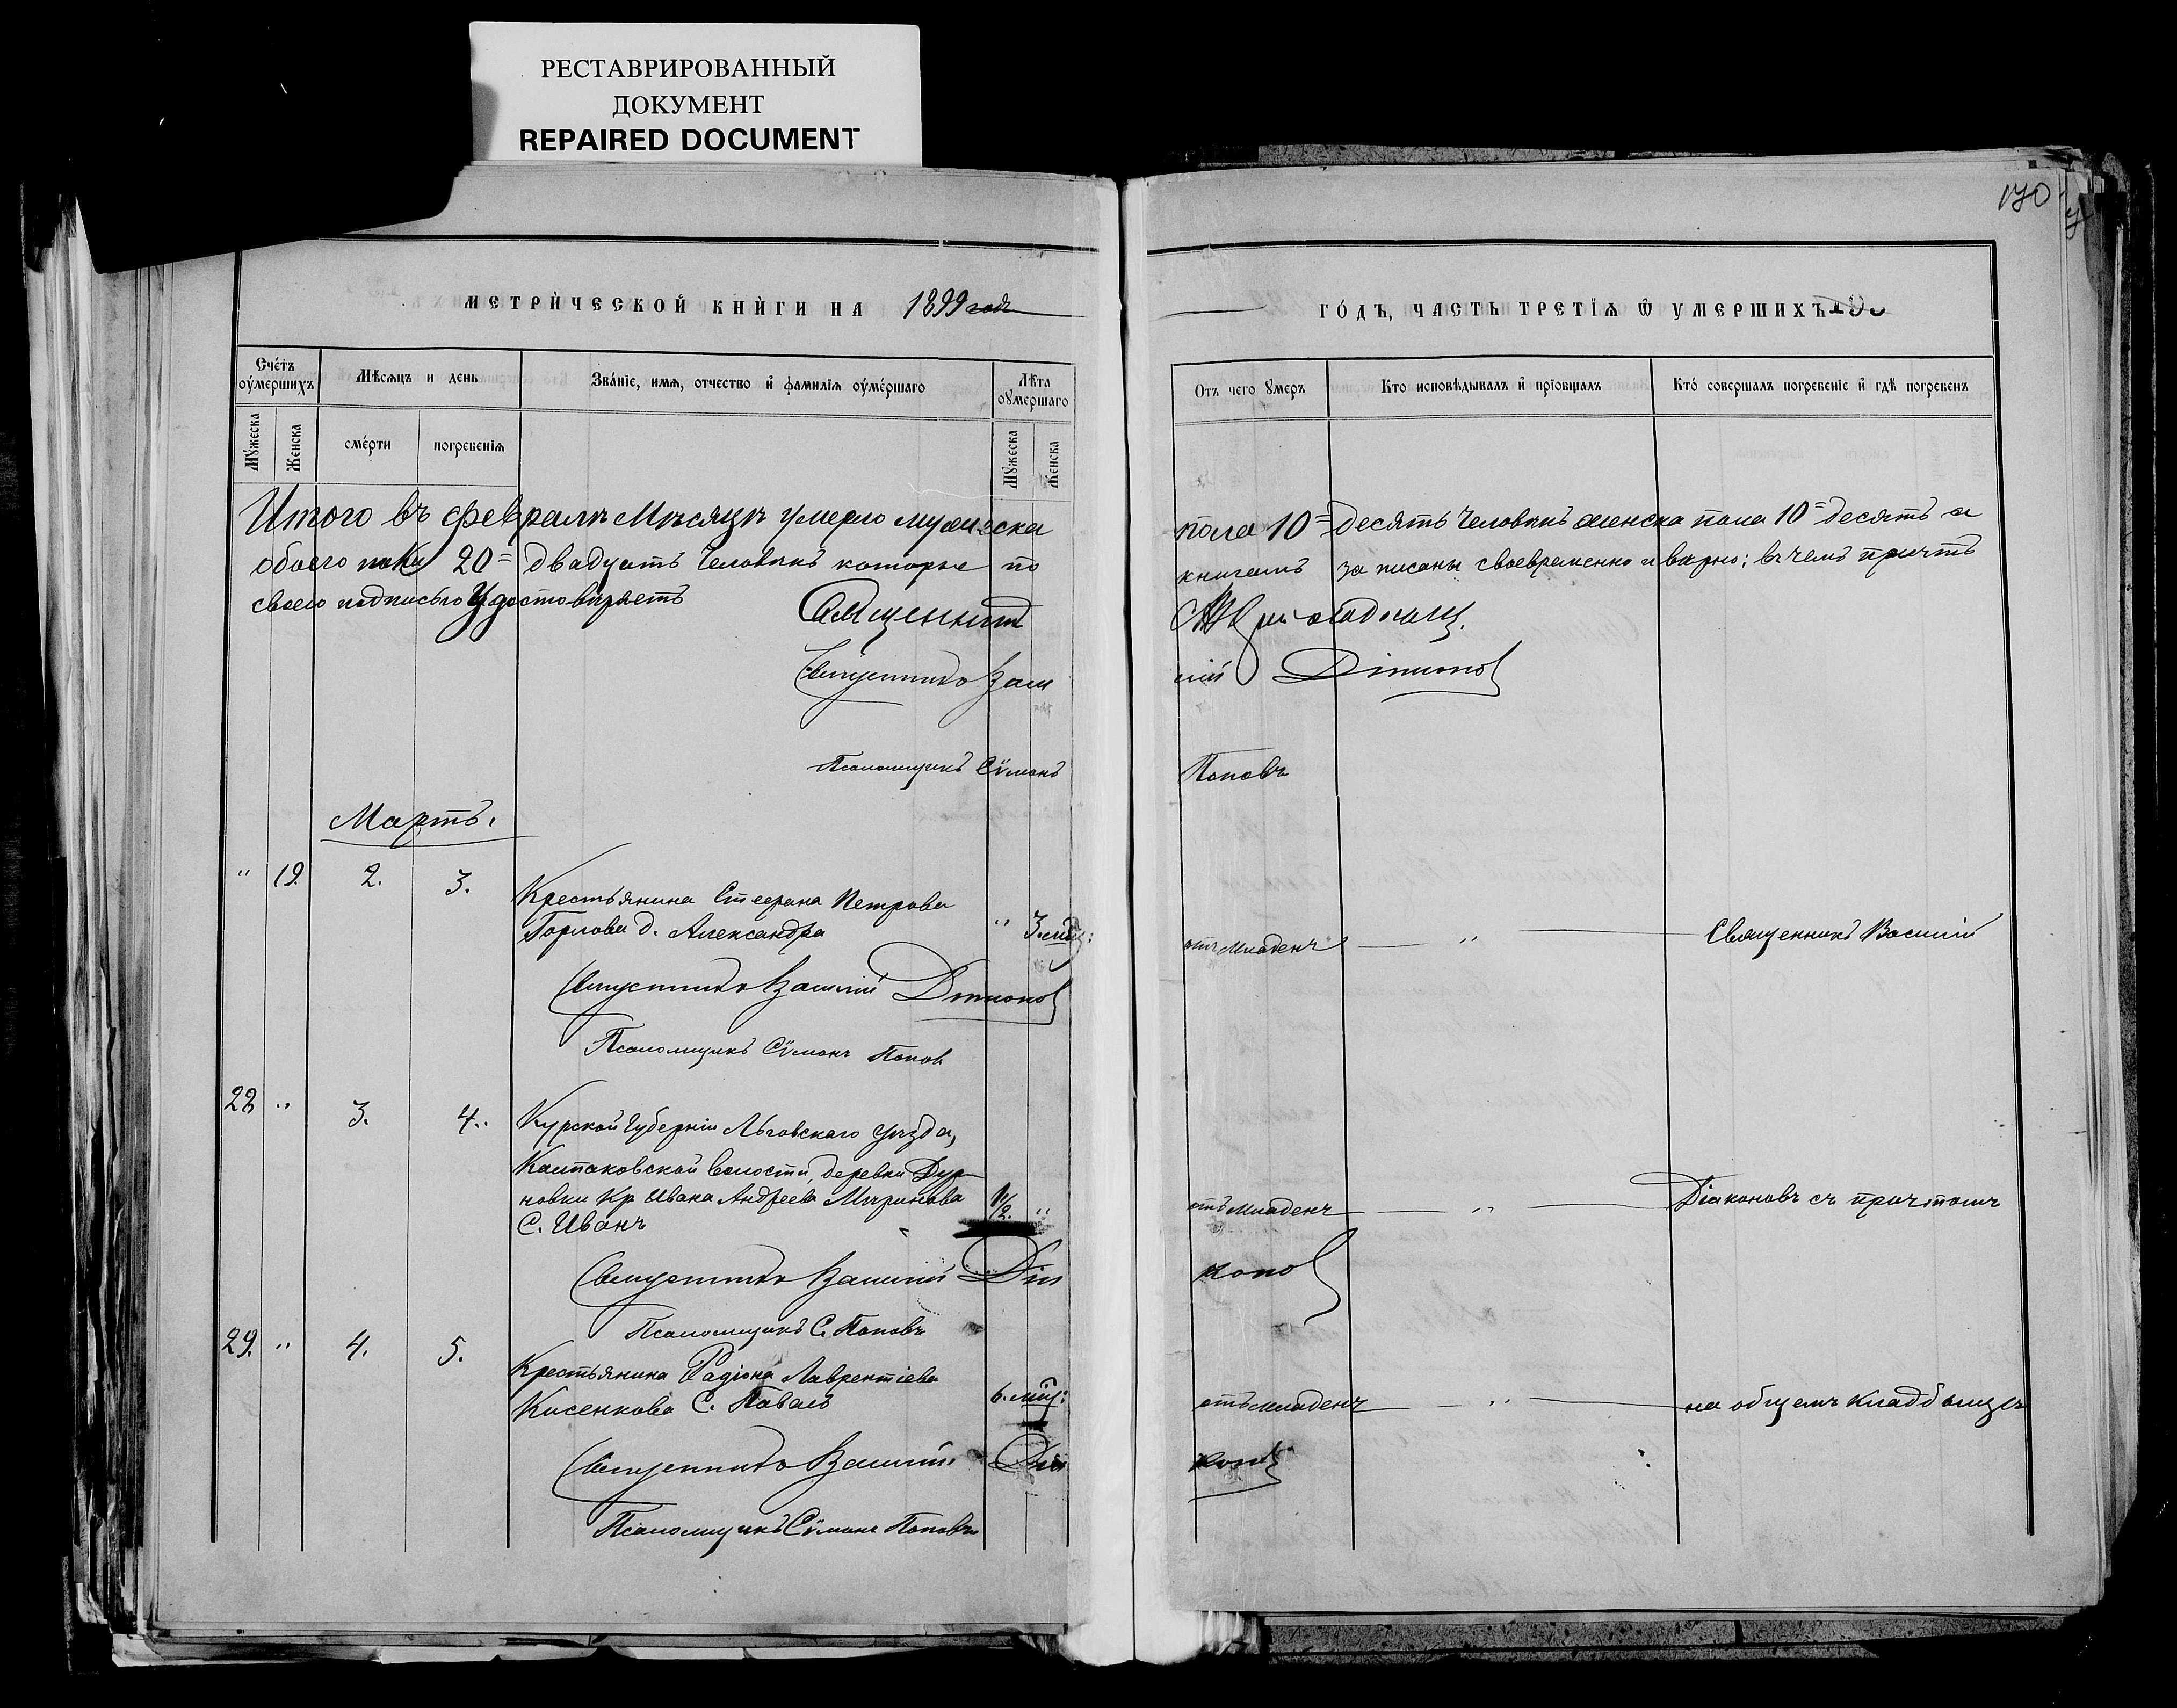 РЕСТАВРИРОВАННЫЙ
ДОКУМЕНТ
REPAIRED DOCUMENT
170
МЕТРИ́ЧЕСКОЙ КНИ́ГИ НА 1899 годъ
ГО́ДЪ, ЧАСТЬ ТРЕТІѦ Ѿ УМЕРШИХЪ
Сче́тъ оу́мершихъ
Мѣсяцъ и день
Зва́нїе, имѧ, отчество и҆ фамилїѧ оу́ме́ршаго
Лѣта оу́мершаго
Отъ чего ꙋмеръ
Кто исповѣдывалъ и҆ прїобщалъ
Кто́ совершалъ погребенїе и҆ гдѣ погребенъ
Мꙋ́жеска
Женска
сме́рти
погребенїѧ
Мꙋжеска
Женска
Итого въ февралѣ Мѣсяцѣ умерло мужеска пола 10= десять человѣкъ женска пола 10= десять а
обоего пола 20= двадцать человѣкъ которые по книгамъ записаны своевременно и вѣрно; въ чемъ причтъ
своею подписью Удостовѣряетъ
Священникъ
Священникъ Василій Діаконов
Псаломщикъ Сѵмонъ Поповъ
Мартъ.
" 19. 2. 3. Крестьянина Стефана Петрова
Горлова д. Александра " 3. мѣс: отъ младенч " Священникъ Василій
Священникъ Василій Діаконов
Псаломщикъ Сѵмонъ Попов
28 " 3. 4. Курской Губерніи Льговскаго уѣзда,
Колпаковской волости, деревни Дур-
новки Кр Ивана Андреева
С. Иванъ 1 1/2. " отъ младенч " Діаконовъ съ причтомъ
Священникъ Василій Діаконов
Псаломщикъ С. Поповъ
29. " 4. 5. Крестьянина Радіона Лаврентіева
Кисенкова С. Павелъ 6. мѣс: отъ младенч " на общемъ кладбищѣ
Священникъ Василій Діаконов
Псаломщикъ Сѵмонъ Поповъ